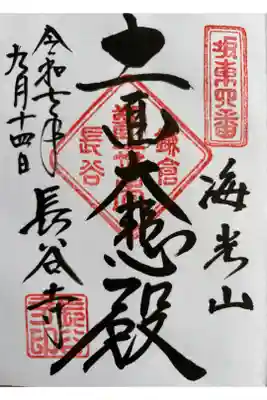 坂東四番
海光山
十一面大悲殿
鎌倉
長谷
長谷寺
令和七年
九月十四日